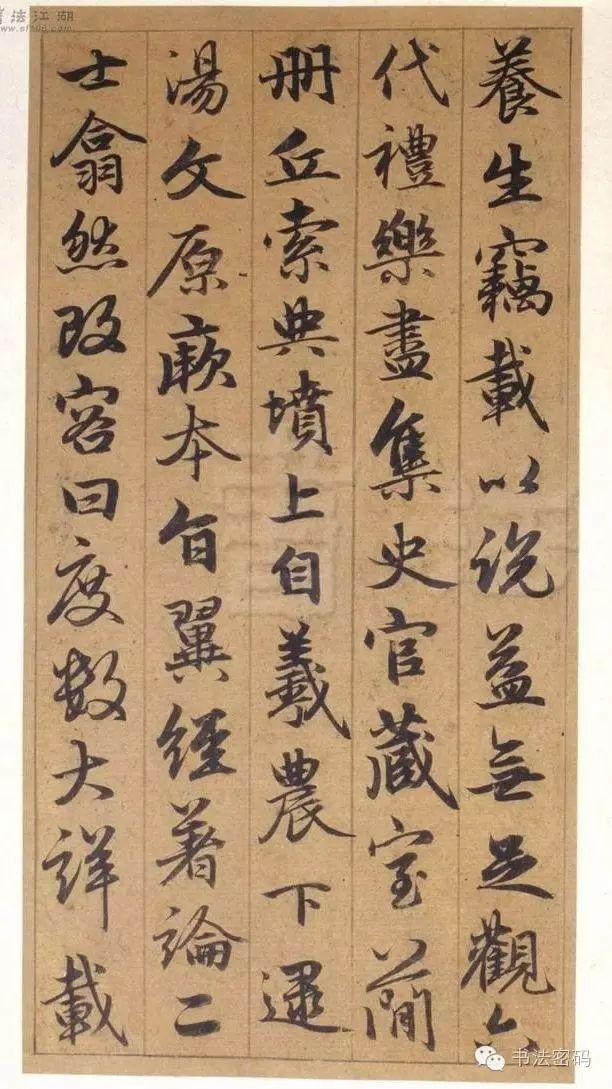 養生竊載以說益無足觀六
代禮樂盡集史官藏室簡
册丘索典墳上自羲農下逮
湯文原厥本旨翼經著論二
士翕然改容曰度數大詳載
書法江湖
书法密码